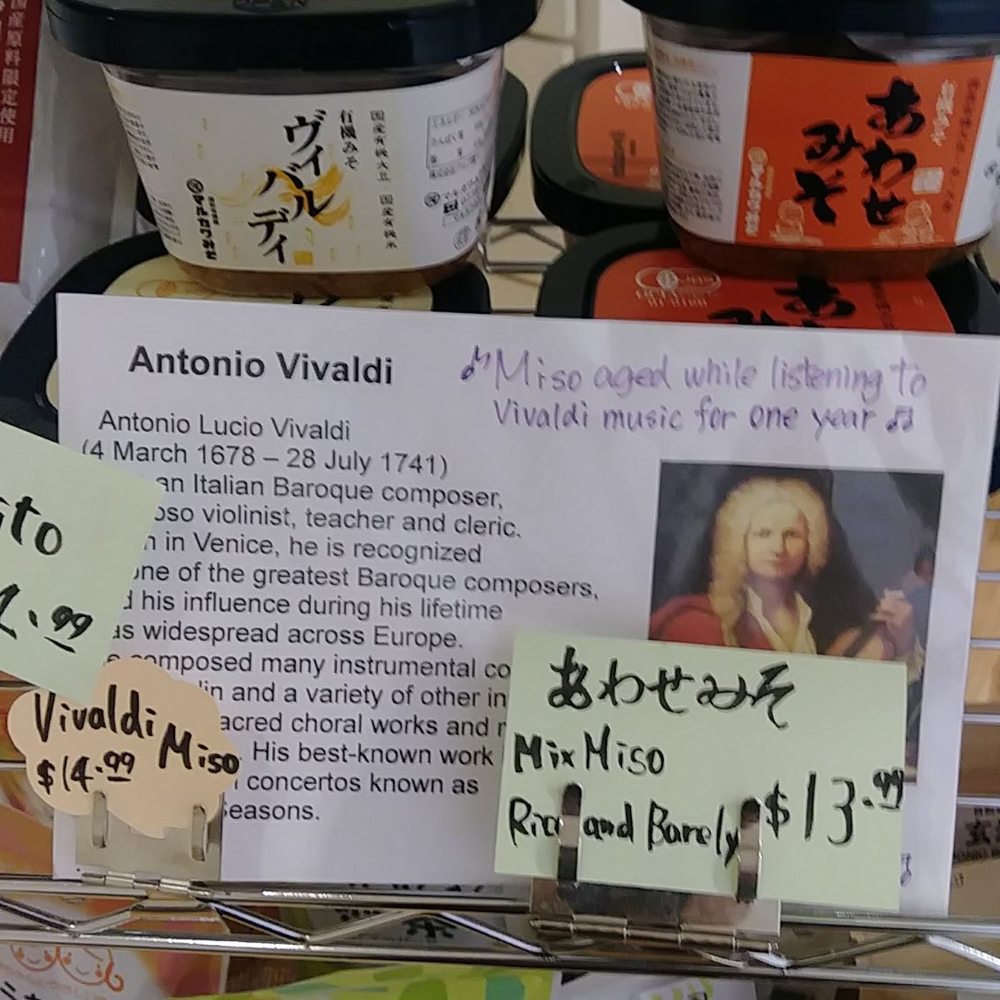 国産原料限定使用
国産有機大豆 国産有機米
有機みそ
ヴィバルディ
マルカワみそ
あわせ
みそ
あわせ
Antonio Vivaldi
Miso aged while listening to
Vivaldi music for one year
Antonio Lucio Vivaldi
(4 March 1678 – 28 July 1741)
an Italian Baroque composer,
oso violinist, teacher and cleric.
n in Venice, he is recognized
one of the greatest Baroque composers,
d his influence during his lifetime
as widespread across Europe.
composed many instrumental co
lin and a variety of other in
acred choral works and
His best-known work
concertos known as
Seasons.
ito
.99
Vivaldi
Miso
$14.99
あわせみそ
Mix Miso
Rice and Barely
$13.99